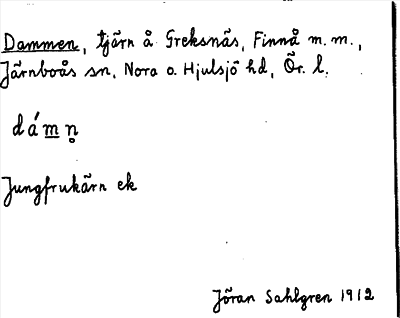 Dammen, tjärn å Greksnäs, Finnå m. m.,
Järnboås sn, Nora o. Hjulsjö hd, Ör. l.
dámn̥
Jungfrukärn ek
Jöran Sahlgren 1912